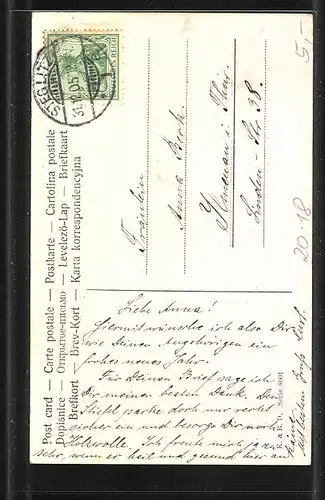 STEGLITZ
31.12.05
DEUTSCHES REICH
5,-
20-18
Fräulein
Anna
Ilmenau i. Thür.
Linden-Str. 38.
Post card — Carte postale — Postkarte — Cartolina postale
Dopisnice — Открытое письмо — Levelező-Lap — Briefkaart
Brefkort — Brev-Kort — Karta korrespondencyjna
Serie 801
Liebe Anna!
Hiermit wünsche ich also Dir
wie Deinen Angehörigen ein
frohes neues Jahr.
Für Deinen Brief sage ich
Dir meinen besten Dank. Den
Stiefel packe doch nur recht
sicher ein und besorge Dir noch
Holzwolle. Ich freute mich ja
sehr, wenn er heil und gesund hier